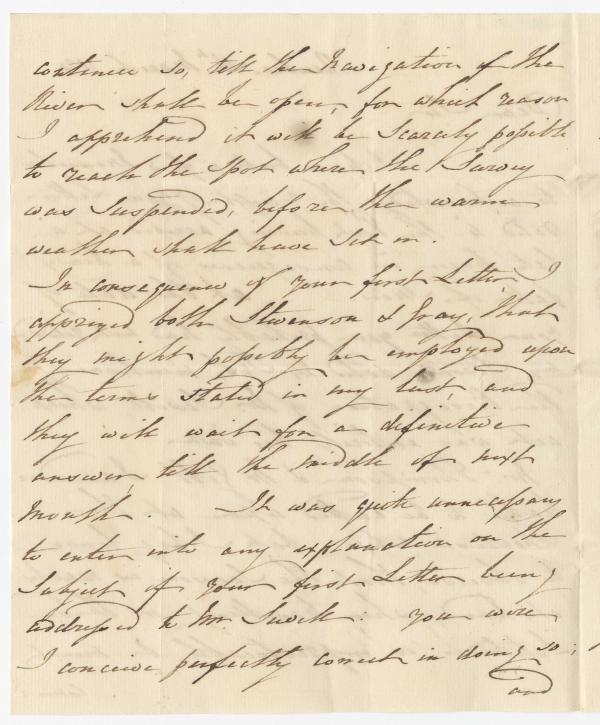 continue so, till the Navigation of the
River shall be open, for which reason
I apprehend it will be Scarcely possible
to reach the spot where the Survey
was Suspended, before the warm
weather shall have Set in.
In consequence of your first Letter, I
apprized both Stevenson & Gray, that
they might possibly be employed upon
the terms stated in my last, and
they will wait for a definitive
answer, till the middle of next
Month. It was quite unnecessary
to enter into any explanation on the
Subject of your first Letter being
addressed to Mr. Swift: you were
I conceive perfectly correct in doing so;
and